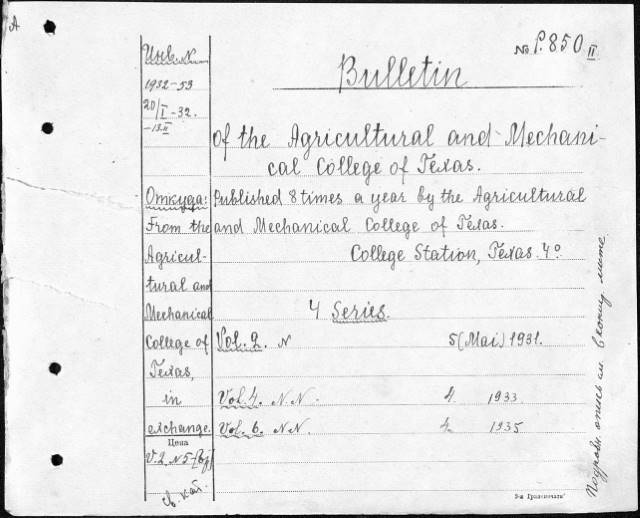 A
№ P.850 II
Инв. N
1932-53
20/I-32.
-13.II
Bulletin
of the Agricultural and Mechani-
cal College of Texas.
Откуда:
From the
Agricul-
tural and
Mechanical
College of
Texas,
in
exchange.
Цена
V.2, N5-
Св. кат.
Published 8 times a year by the Agricultural
and Mechanical College of Texas.
College Station, Texas. 4°
4 Series.
Vol. 2. N 5 (Mai) 1931.
Vol. 4. N.N. 4. 1933
Vol. 6. N.N. 4. 1935
Подробн. опись см. в конц. ленте
3-я Гранпечати